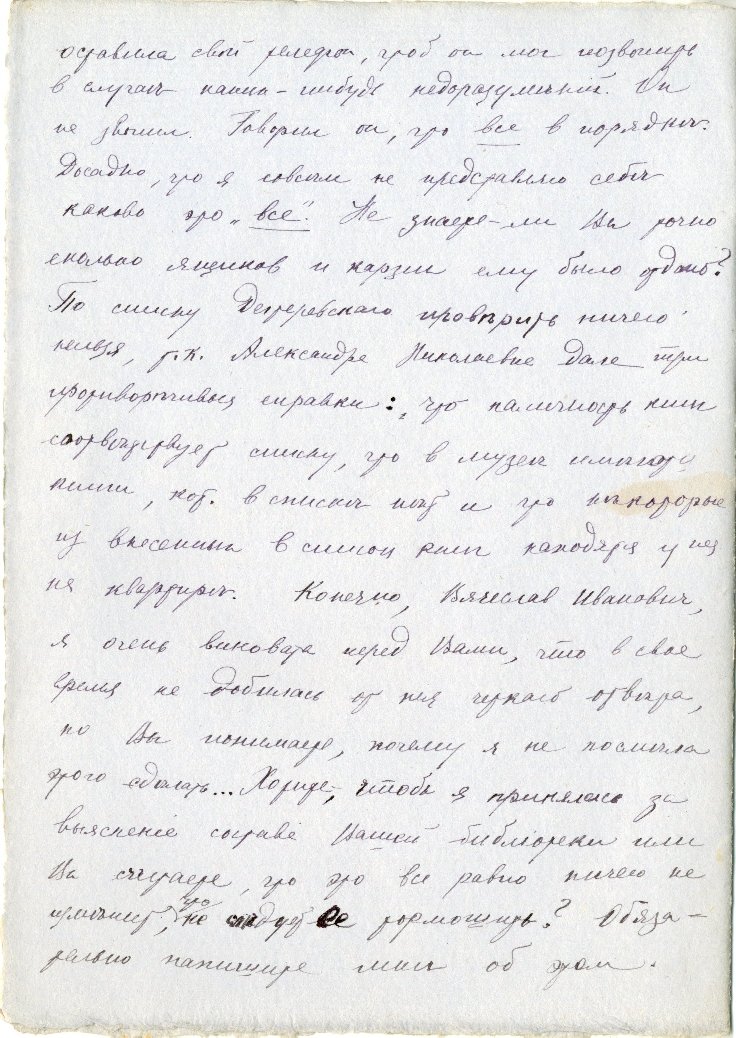 оставила свой телефон, чтоб он мог позвонить
в случаѣ какихъ-нибудь недоразумѣній. Он
не звонил. Говорил он, что все в порядкѣ.
Досадно, что я совсѣм не представляю себѣ
каково это „все". Не знаете-ли Вы точно
сколько ящиков и карзин ему было отдано?
По списку Дегтеревскаго провѣрить ничего
нельзя, т.к. Александра Николаевна дала три
противорѣчивыя справки: что наличность книг
соотвѣтствует списку, что в музеѣ имѣются
книги, кот. в спискѣ нѣт и что нѣкоторые
из внесенных в список книг находятся у нея
на квартирѣ. Конечно, Вячеслав Иванович,
я очень виновата перед Вами, что в свое
время не добилась от нея четкаго отвѣта,
но Вы понимаете, почему я не посмѣла
этого сдѣлать... Хотите, чтобы я принялась за
выясненіе состава Вашей библіотеки или
Вы считаете, что это все равно ничего не
измѣнит, что не слѣдует ее тормошить? Обяза-
тельно напишите мнѣ об этом.